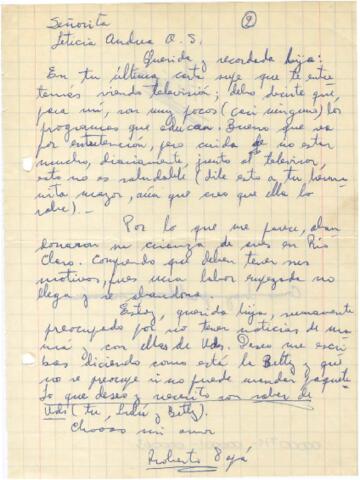 2
Señorita
Leticia Andrea O. S.
Querida y recordada hija:
En tu última carta supe que te entre
tenías viendo televisión; debo decirte que,
para mí, son muy pocos (casi ninguno) los
programas que educan. Bueno que vea
por entretención, pero cuida de no estar
mucho, diariamente, junto al televisor,
esto no es saludable (dile esto a tu herma-
nita mayor, aún que creo que ella lo
sabe).-
Por lo que me parece, aban
donaron su crianza de aves en Río
Claro. Comprendo que deben tener sus
motivos, pues una labor empezada no
llega y se abandona.
Estoy, querida hija, sumamente
preocupado por no tener noticias de ma
má, con ellas de Uds. Deseo me escri
bas diciendo como está la Betty y qué
no se preocupe si no puede mandar paquete
Lo que deseo y necesito son saber de
Uds (tu, y Betty).
Chaooo mi amor
Roberto Papá